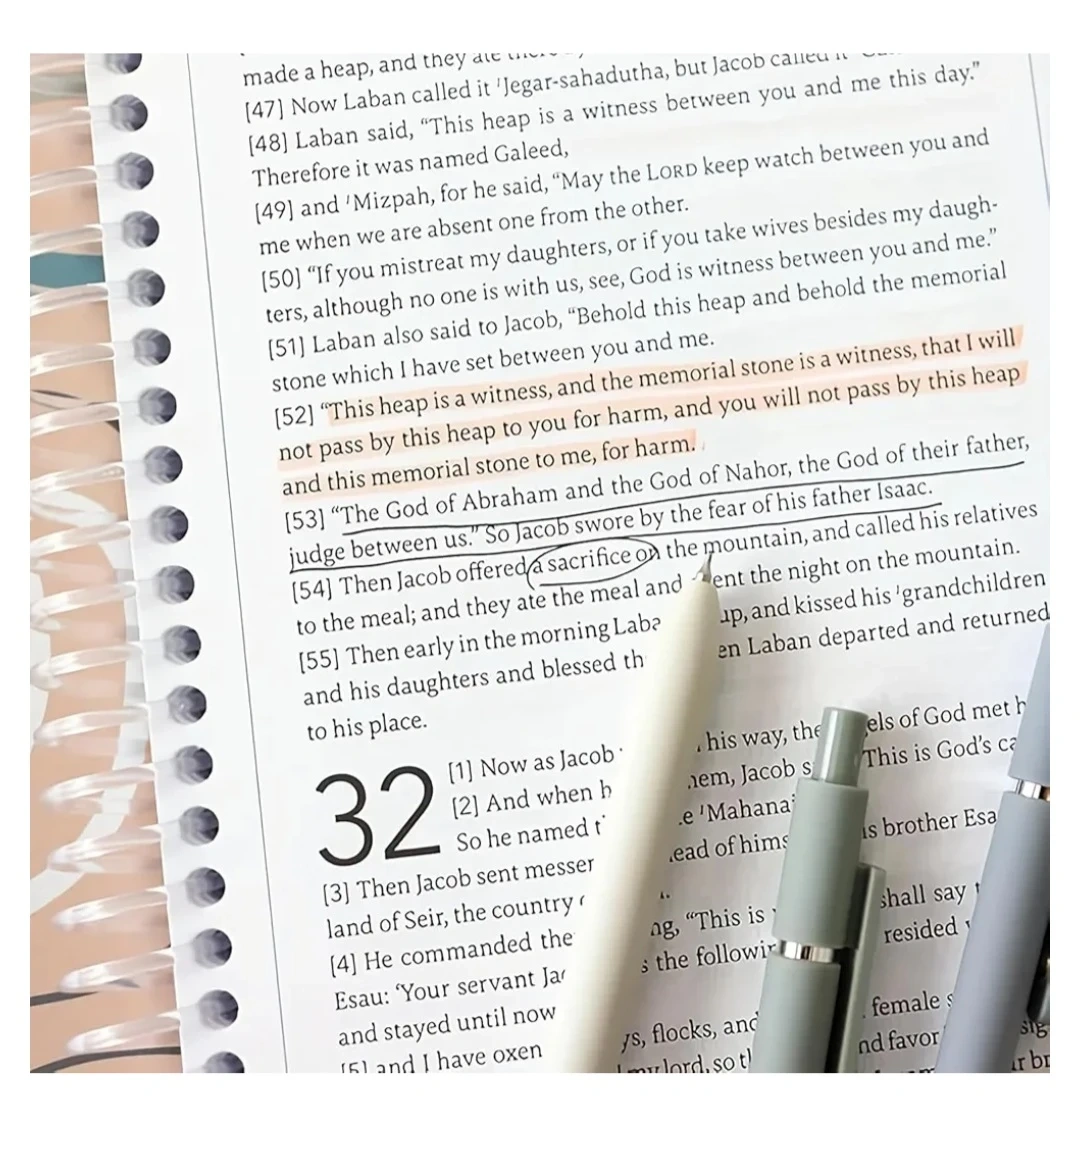 made a heap, and they ate
[47] Now Laban called it 'Jegar-sahadutha, but Jacob called it
[48] Laban said, “This heap is a witness between you and me this day.”
Therefore it was named Galeed,
[49] and 'Mizpah, for he said, “May the LORD keep watch between you and
me when we are absent one from the other.
[50] “If you mistreat my daughters, or if you take wives besides my daugh-
ters, although no one is with us, see, God is witness between you and me.”
[51] Laban also said to Jacob, “Behold this heap and behold the memorial
stone which I have set between you and me.
[52] “This heap is a witness, and the memorial stone is a witness, that I will
not pass by this heap to you for harm, and you will not pass by this heap
and this memorial stone to me, for harm.
[53] “The God of Abraham and the God of Nahor, the God of their father,
judge between us.” So Jacob swore by the fear of his father Isaac.
[54] Then Jacob offered a sacrifice on the mountain, and called his relatives
to the meal; and they ate the meal and ent the night on the mountain.
[55] Then early in the morning Laba up, and kissed his 'grandchildren
and his daughters and blessed th en Laban departed and returned
to his place.
32
[1] Now as Jacob his way, the els of God met h
[2] And when h hem, Jacob s This is God’s ca
So he named t e 'Mahanai
[3] Then Jacob sent messer ead of hims is brother Esa
land of Seir, the country
[4] He commanded the ng, “This is shall say
Esau: ‘Your servant Ja s the followin resided
and stayed until now
[5] and I have oxen ys, flocks, and female s
my lord, so th nd favor sig